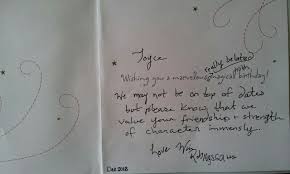 Joyce
really belated
Wishing you a marvelous magical birthday!
We may not be on top of dates
but please know that we
value your friendship + strength
of character immensely.
Love
Dec 2018